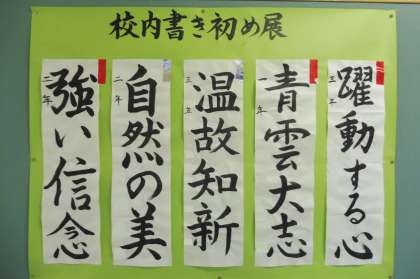 校内書き初め展
躍動する心
三年
青雲大志
一年
温故知新
三年
自然の美
二年
強い信念
二年